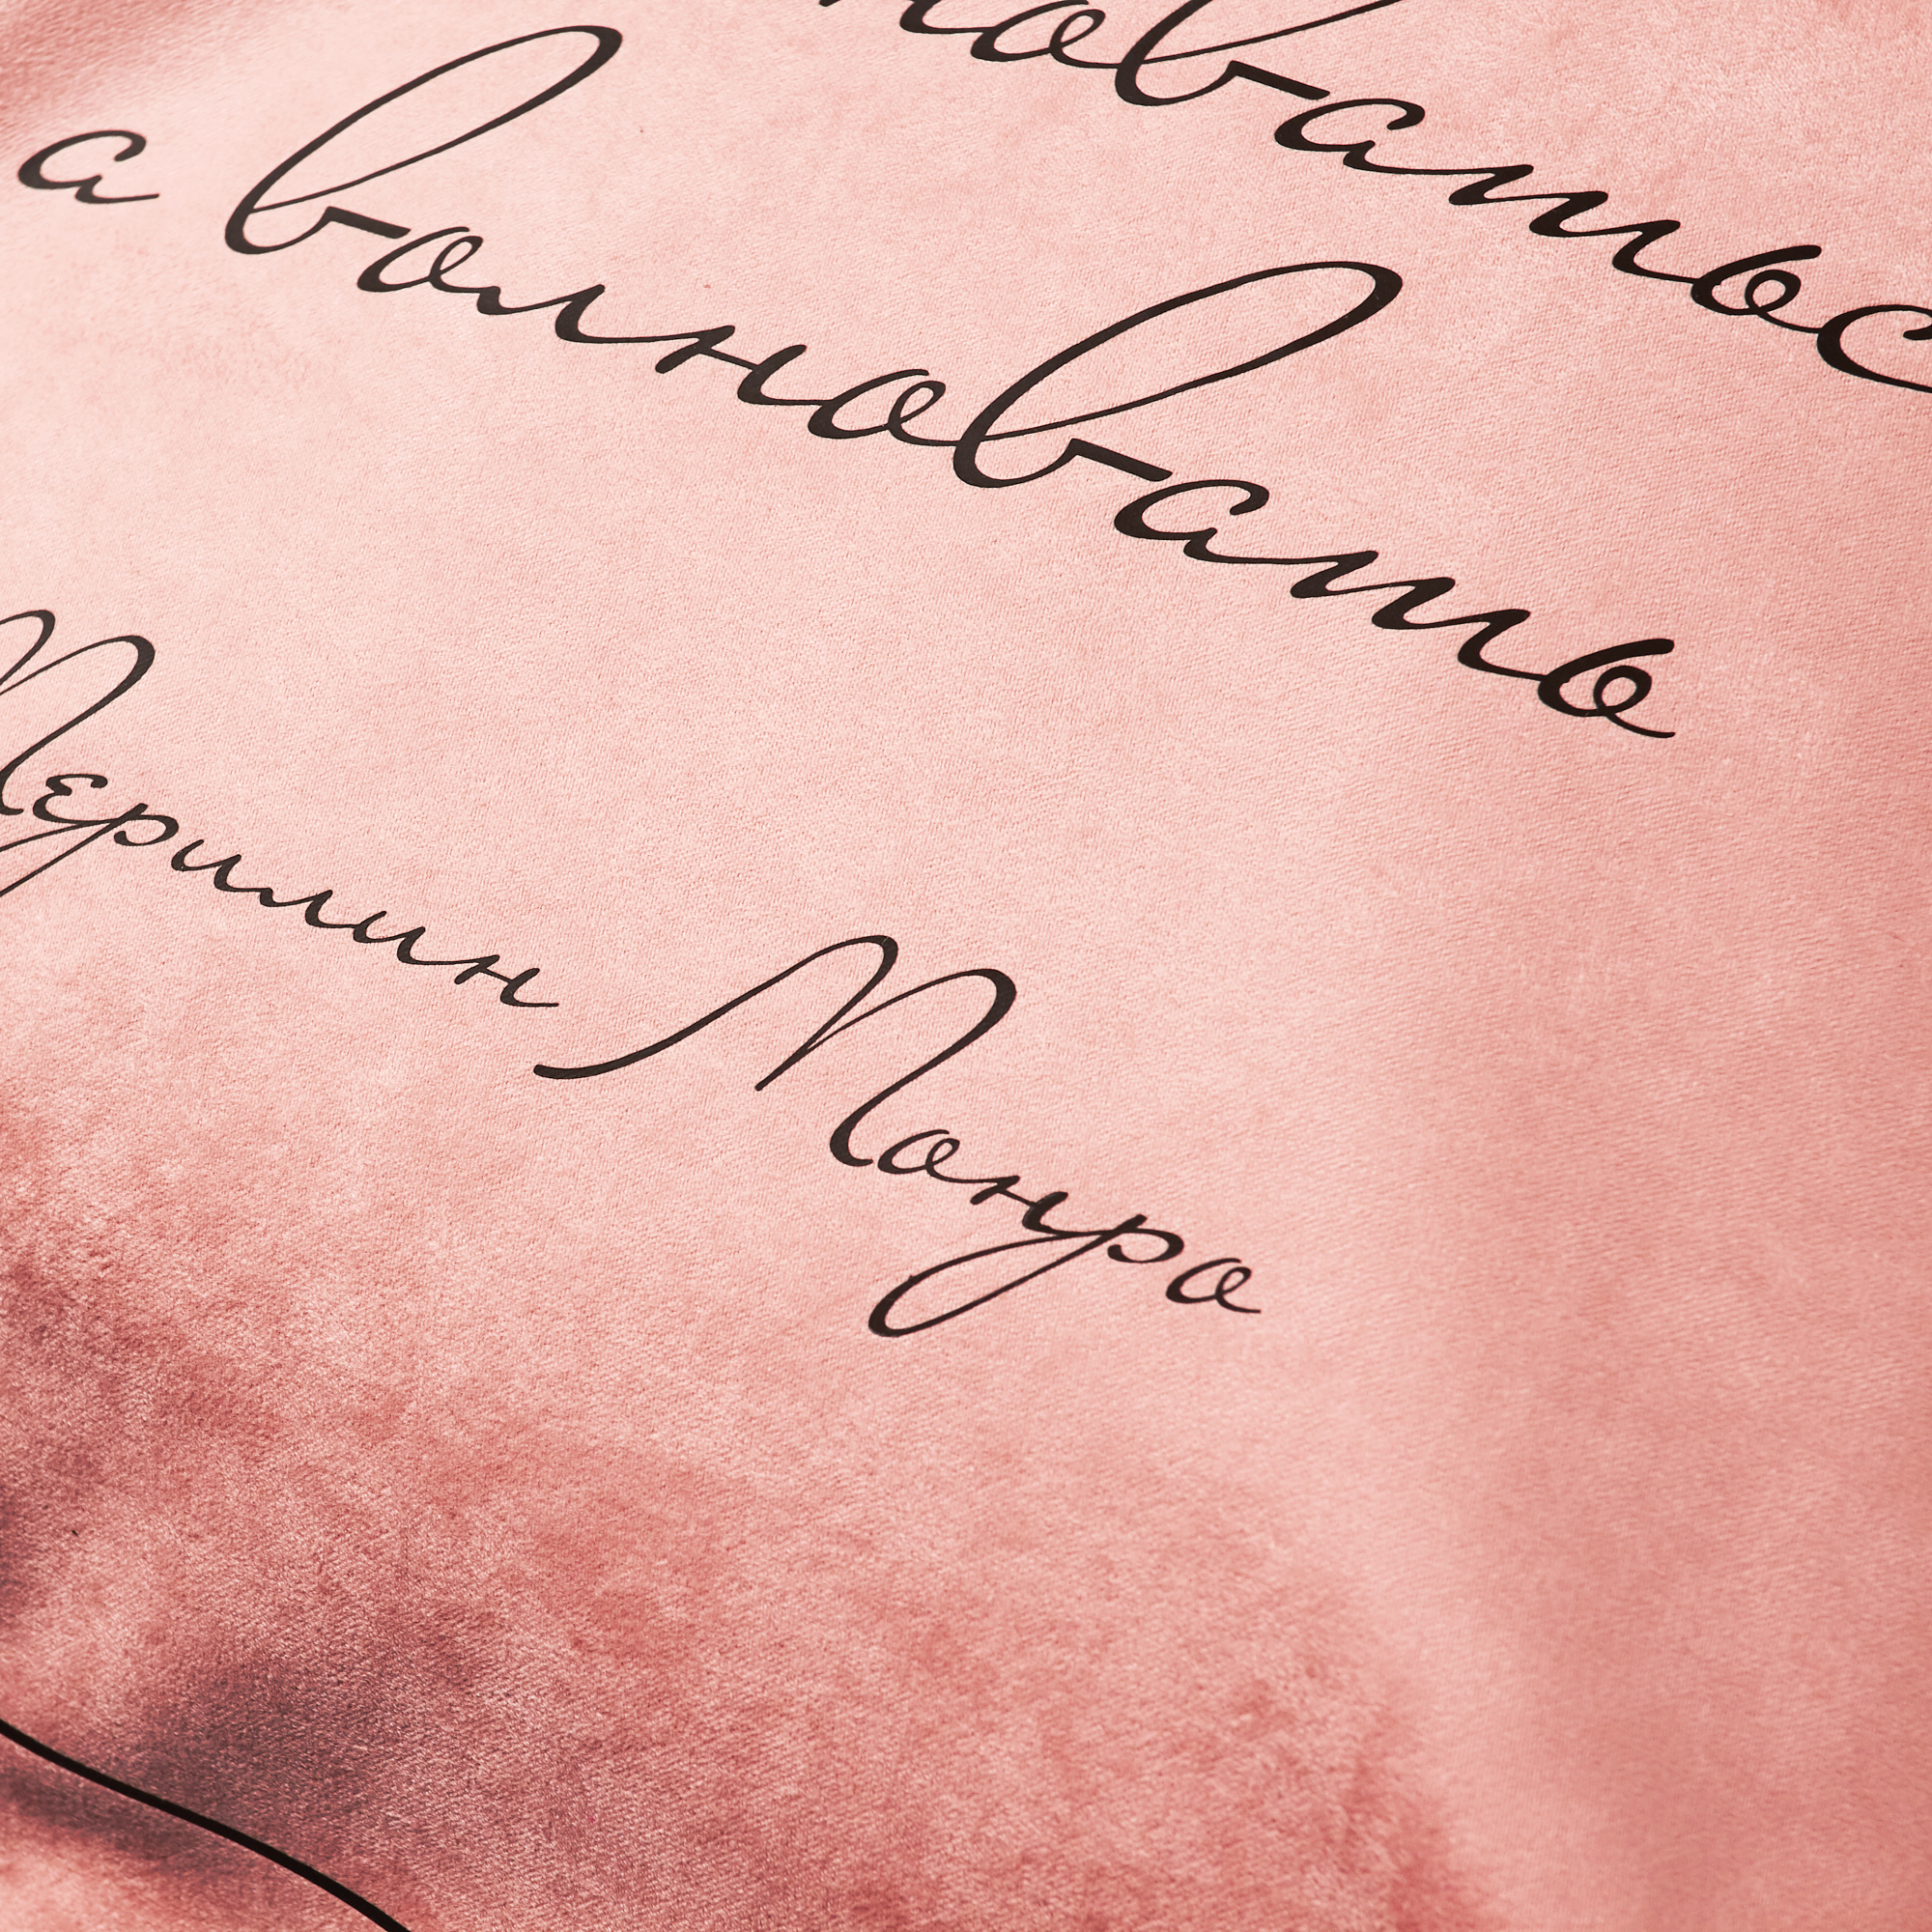 новатьс
а волновать
Мерилин Монро